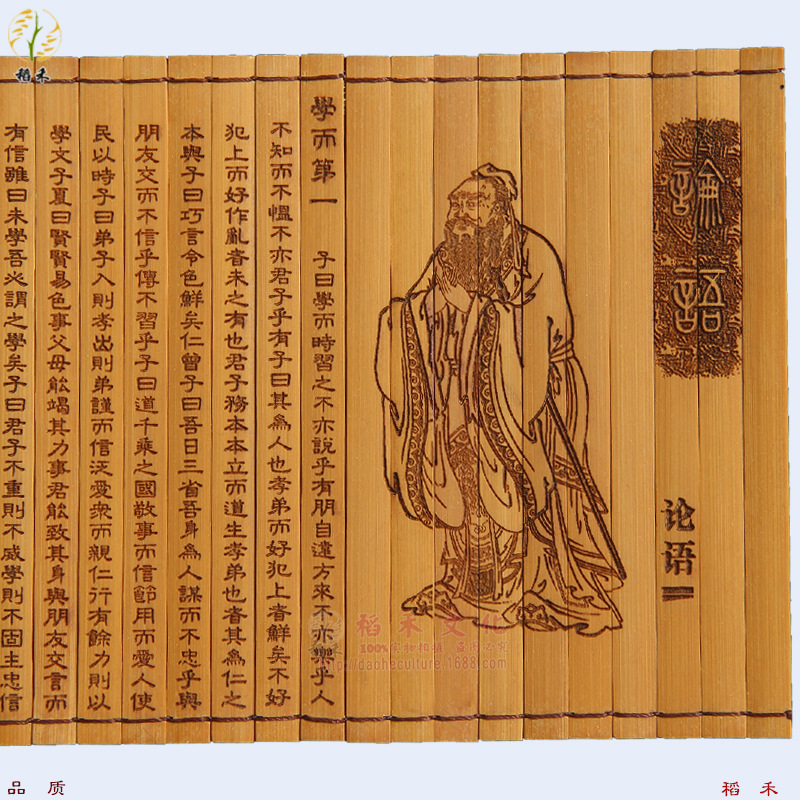 稻禾
論語
论语
學而第一 子曰學而時習之不亦說乎有朋自遠方來不亦樂乎人
不知而不慍不亦君子乎有子曰其為人也孝弟而好犯上者鮮矣不好
犯上而好作亂者未之有也君子務本本立而道生孝弟也者其為仁之
本與子曰巧言令色鮮矣仁曾子曰吾日三省吾身為人謀而不忠乎與
朋友交而不信乎傳不習乎子曰道千乘之國敬事而信節用而愛人使
民以時子曰弟子入則孝出則弟謹而信泛愛眾而親仁行有餘力則以
學文子夏曰賢賢易色事父母能竭其力事君能致其身與朋友交言而
有信雖曰未學吾必謂之學矣子曰君子不重則不威學則不固主忠信
稻禾文化
100%实物拍摄 盗图必究
http://daoheculture.1688.com
品质
稻禾